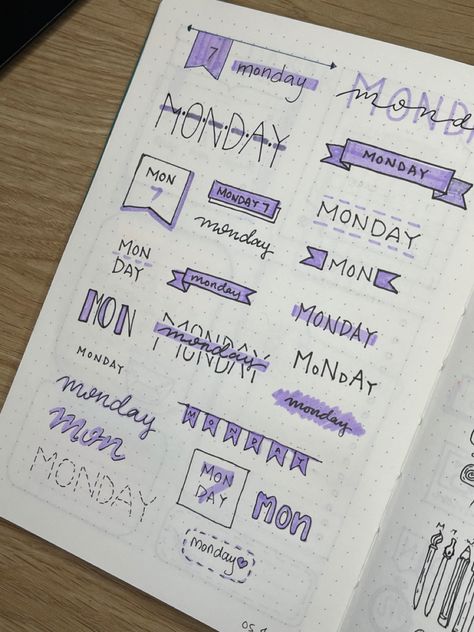 7
monday
MONDAY
monday
M·O·N·D·A·Y
MONDAY
MON
7
MONDAY 7
monday
MONDAY
MON
MON
DAY
monday
MON
MONDAY
MONDAY
monday
MONDAY
MoNDAY
monday
monday
mon
MONDAY
MONDAY
MON
DAY
7
mon
monday